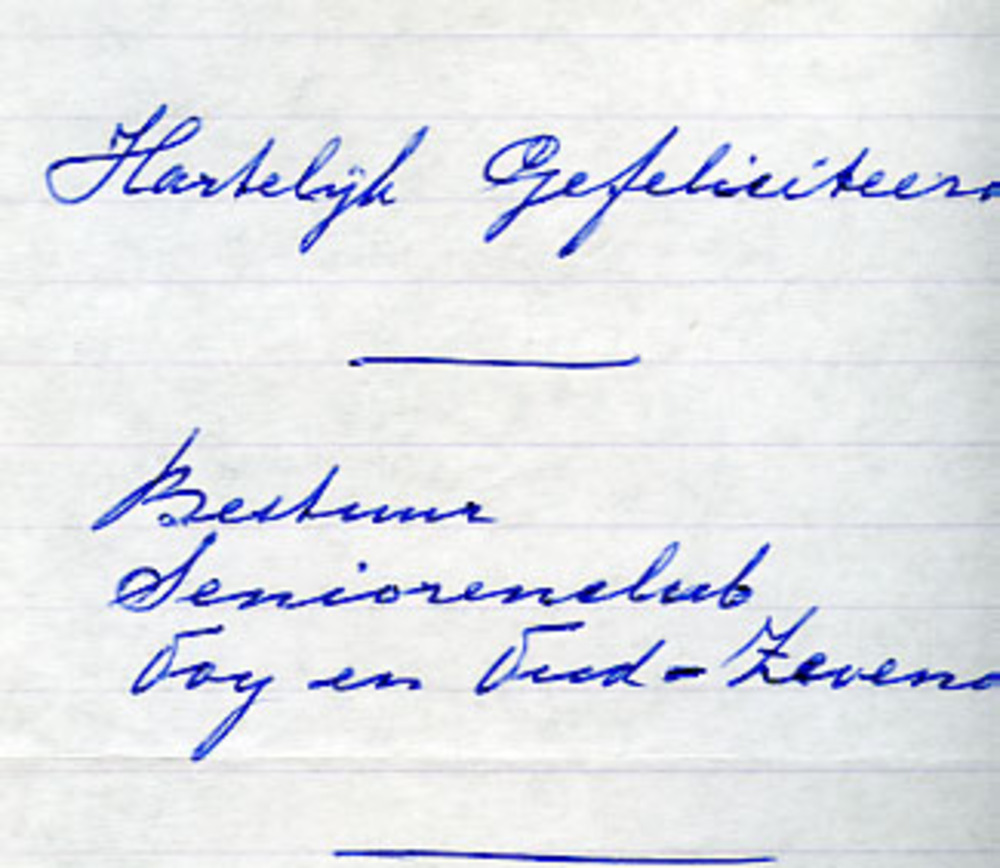 Hartelijk Gefeliciteerd
Bestuur
Seniorenclub
Ooy en Oud-Zevena